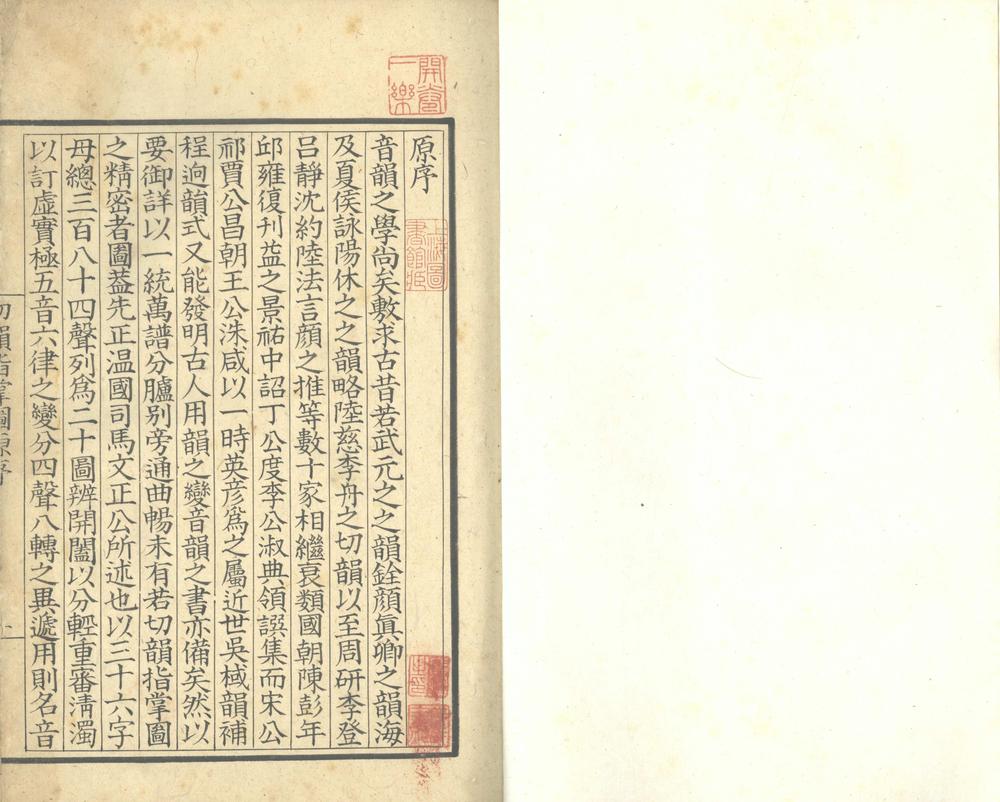 原序
音韻之學尚矣敷求古昔若武元之之韻銓顔眞卿之韻海
及夏侯詠陽休之之韻略陸慈李舟之切韻以至周研李登
呂靜沈約陸法言顔之推等數十家相繼裒類國朝陳彭年
邱雍復刊益之景祐中詔丁公度李公淑典領譔集而宋公
祁賈公昌朝王公洙咸以一時英彦爲之屬近世吳棫韻補
程逈韻式又能發明古人用韻之變音韻之書亦備矣然以
要御詳以一統萬譜分臚别旁通曲暢未有若切韻指掌圖
之精密者圖葢先正温國司馬文正公所述也以三十六字
母總三百八十四聲列爲二十圖辨開闔以分輕重審清濁
以訂虛實極五音六律之變分四聲八轉之異遞用則名音
切韻指掌圖原序
上海圖書館臧